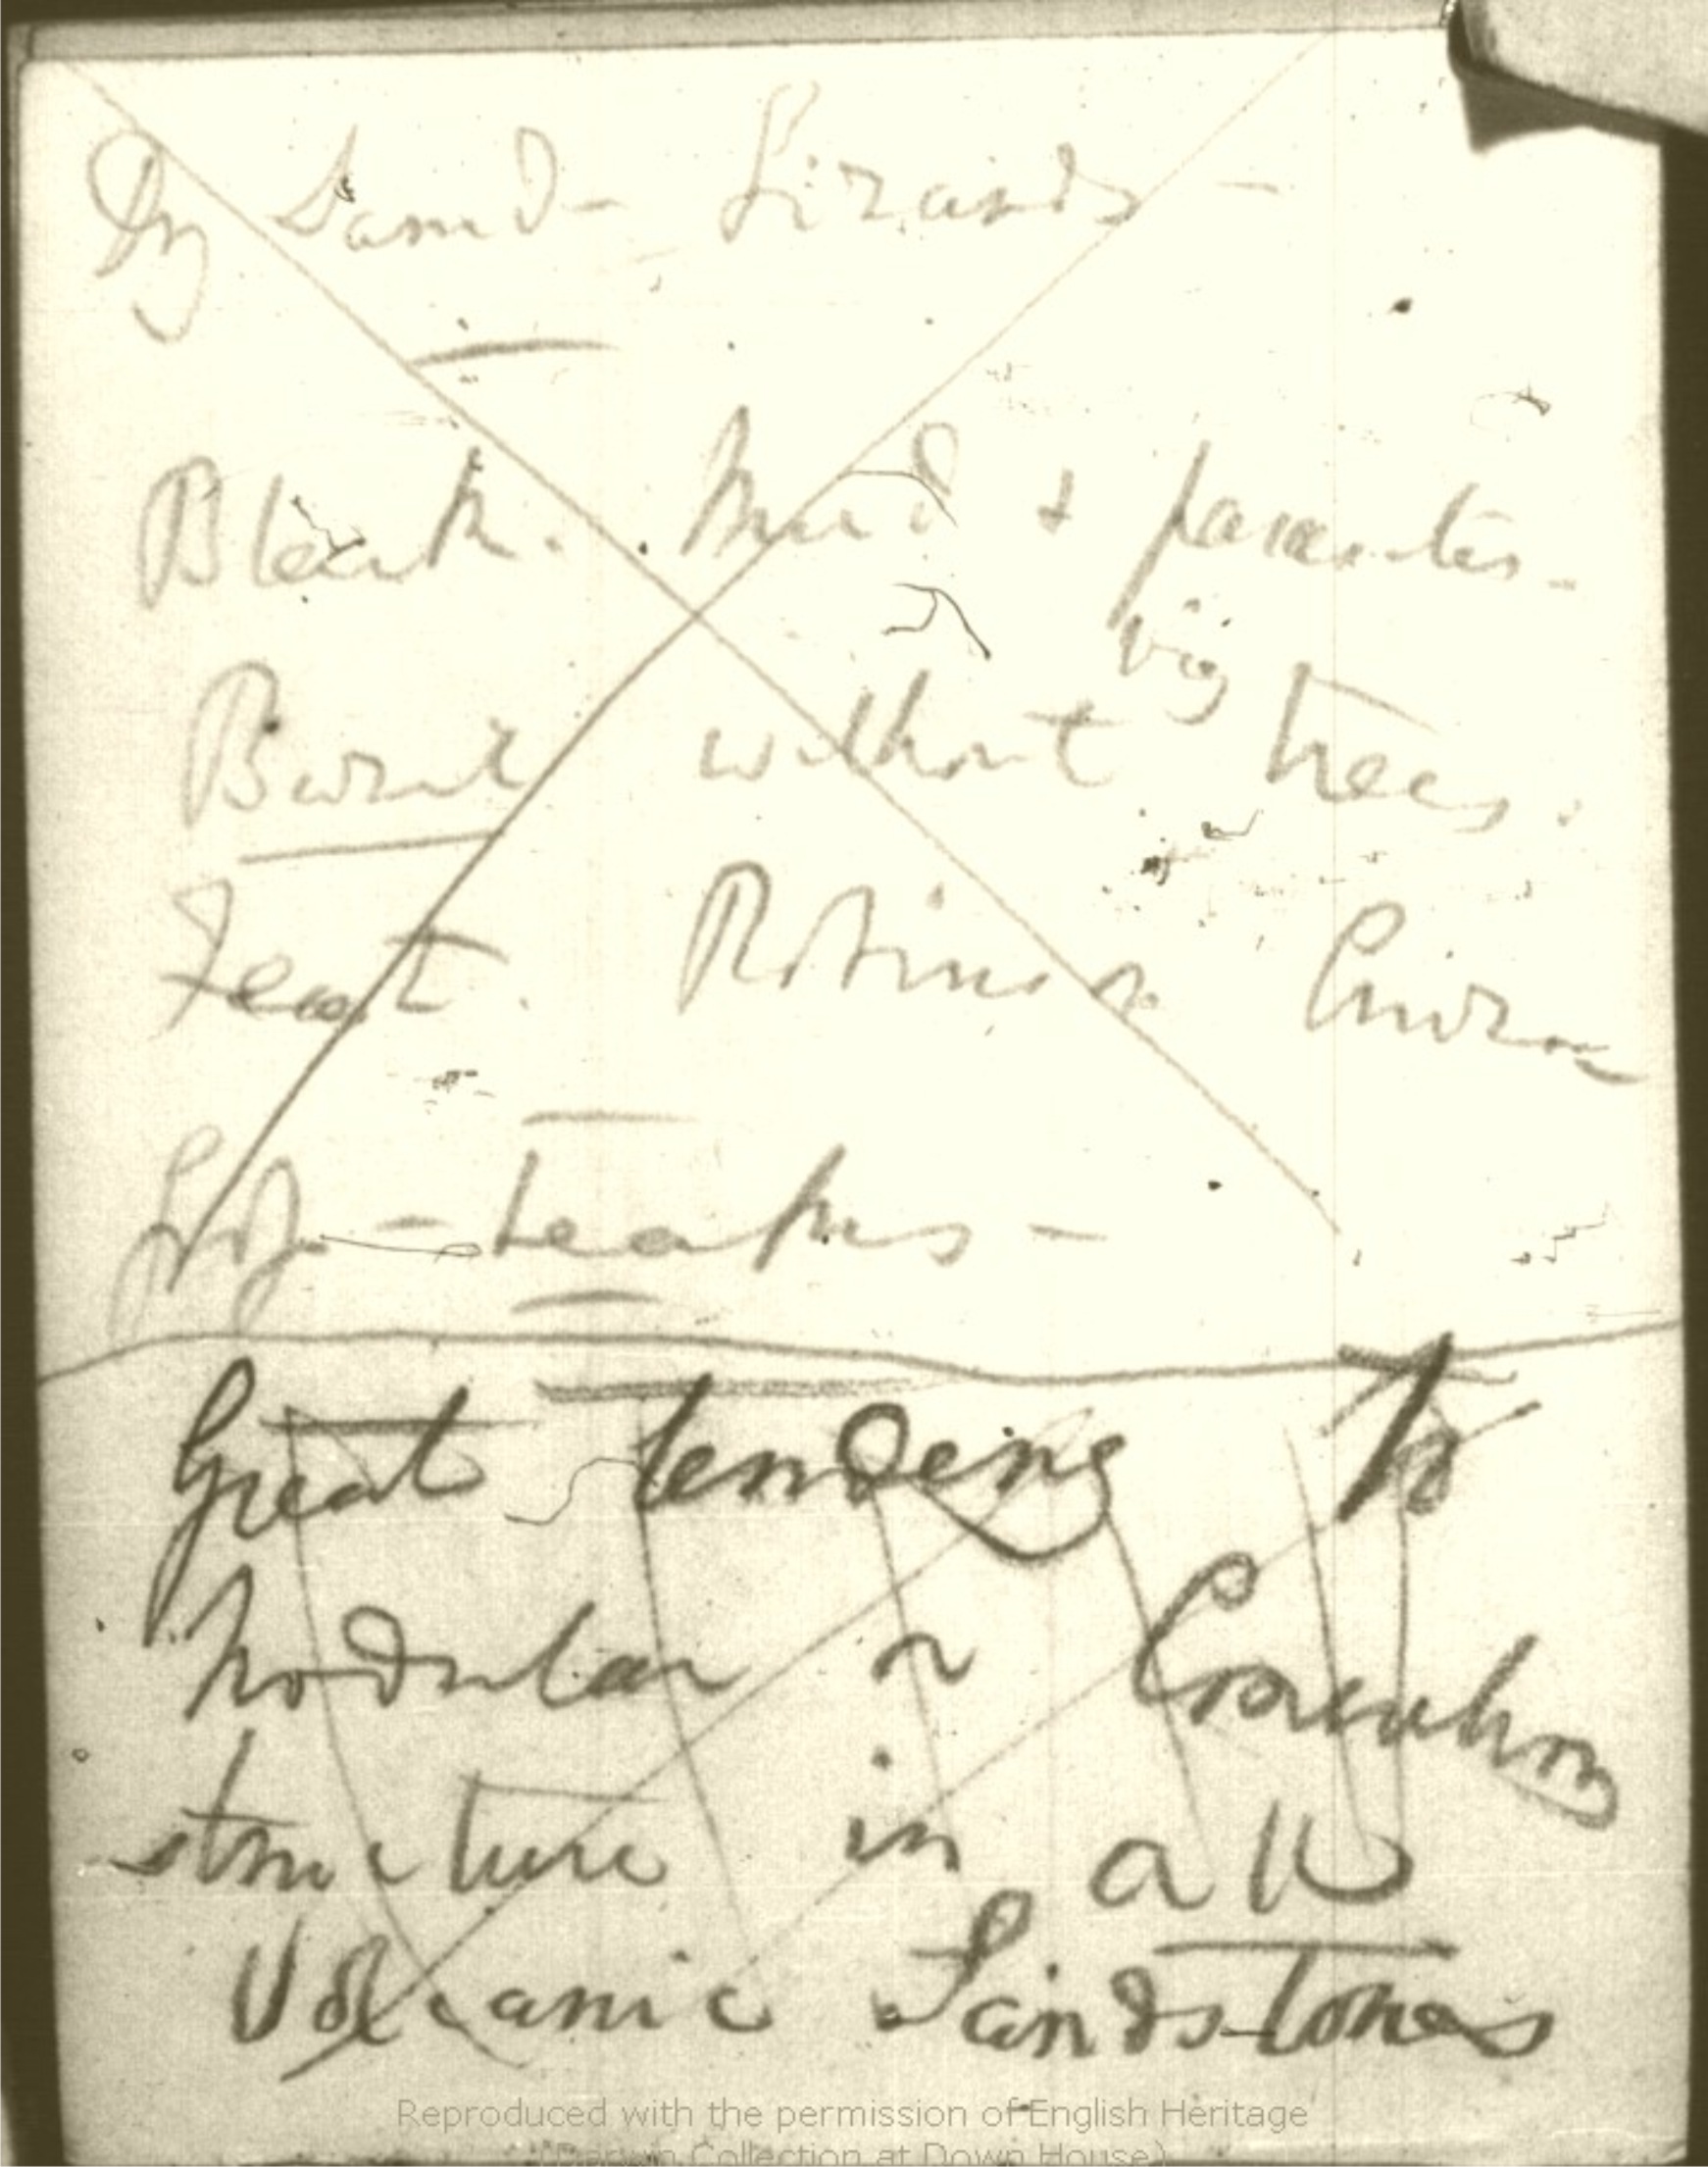 Dry Sand - Lizards -
Black. Mud & parasites -
viz
Burnt without trees.
Feast. Robinson Crusoe
Fog - teaks -
Great tendency to
Nodular or Concretionary
structure in all
Volcanic Sandstones
Reproduced with the permission of English Heritage
(Darwin Collection at Down House)